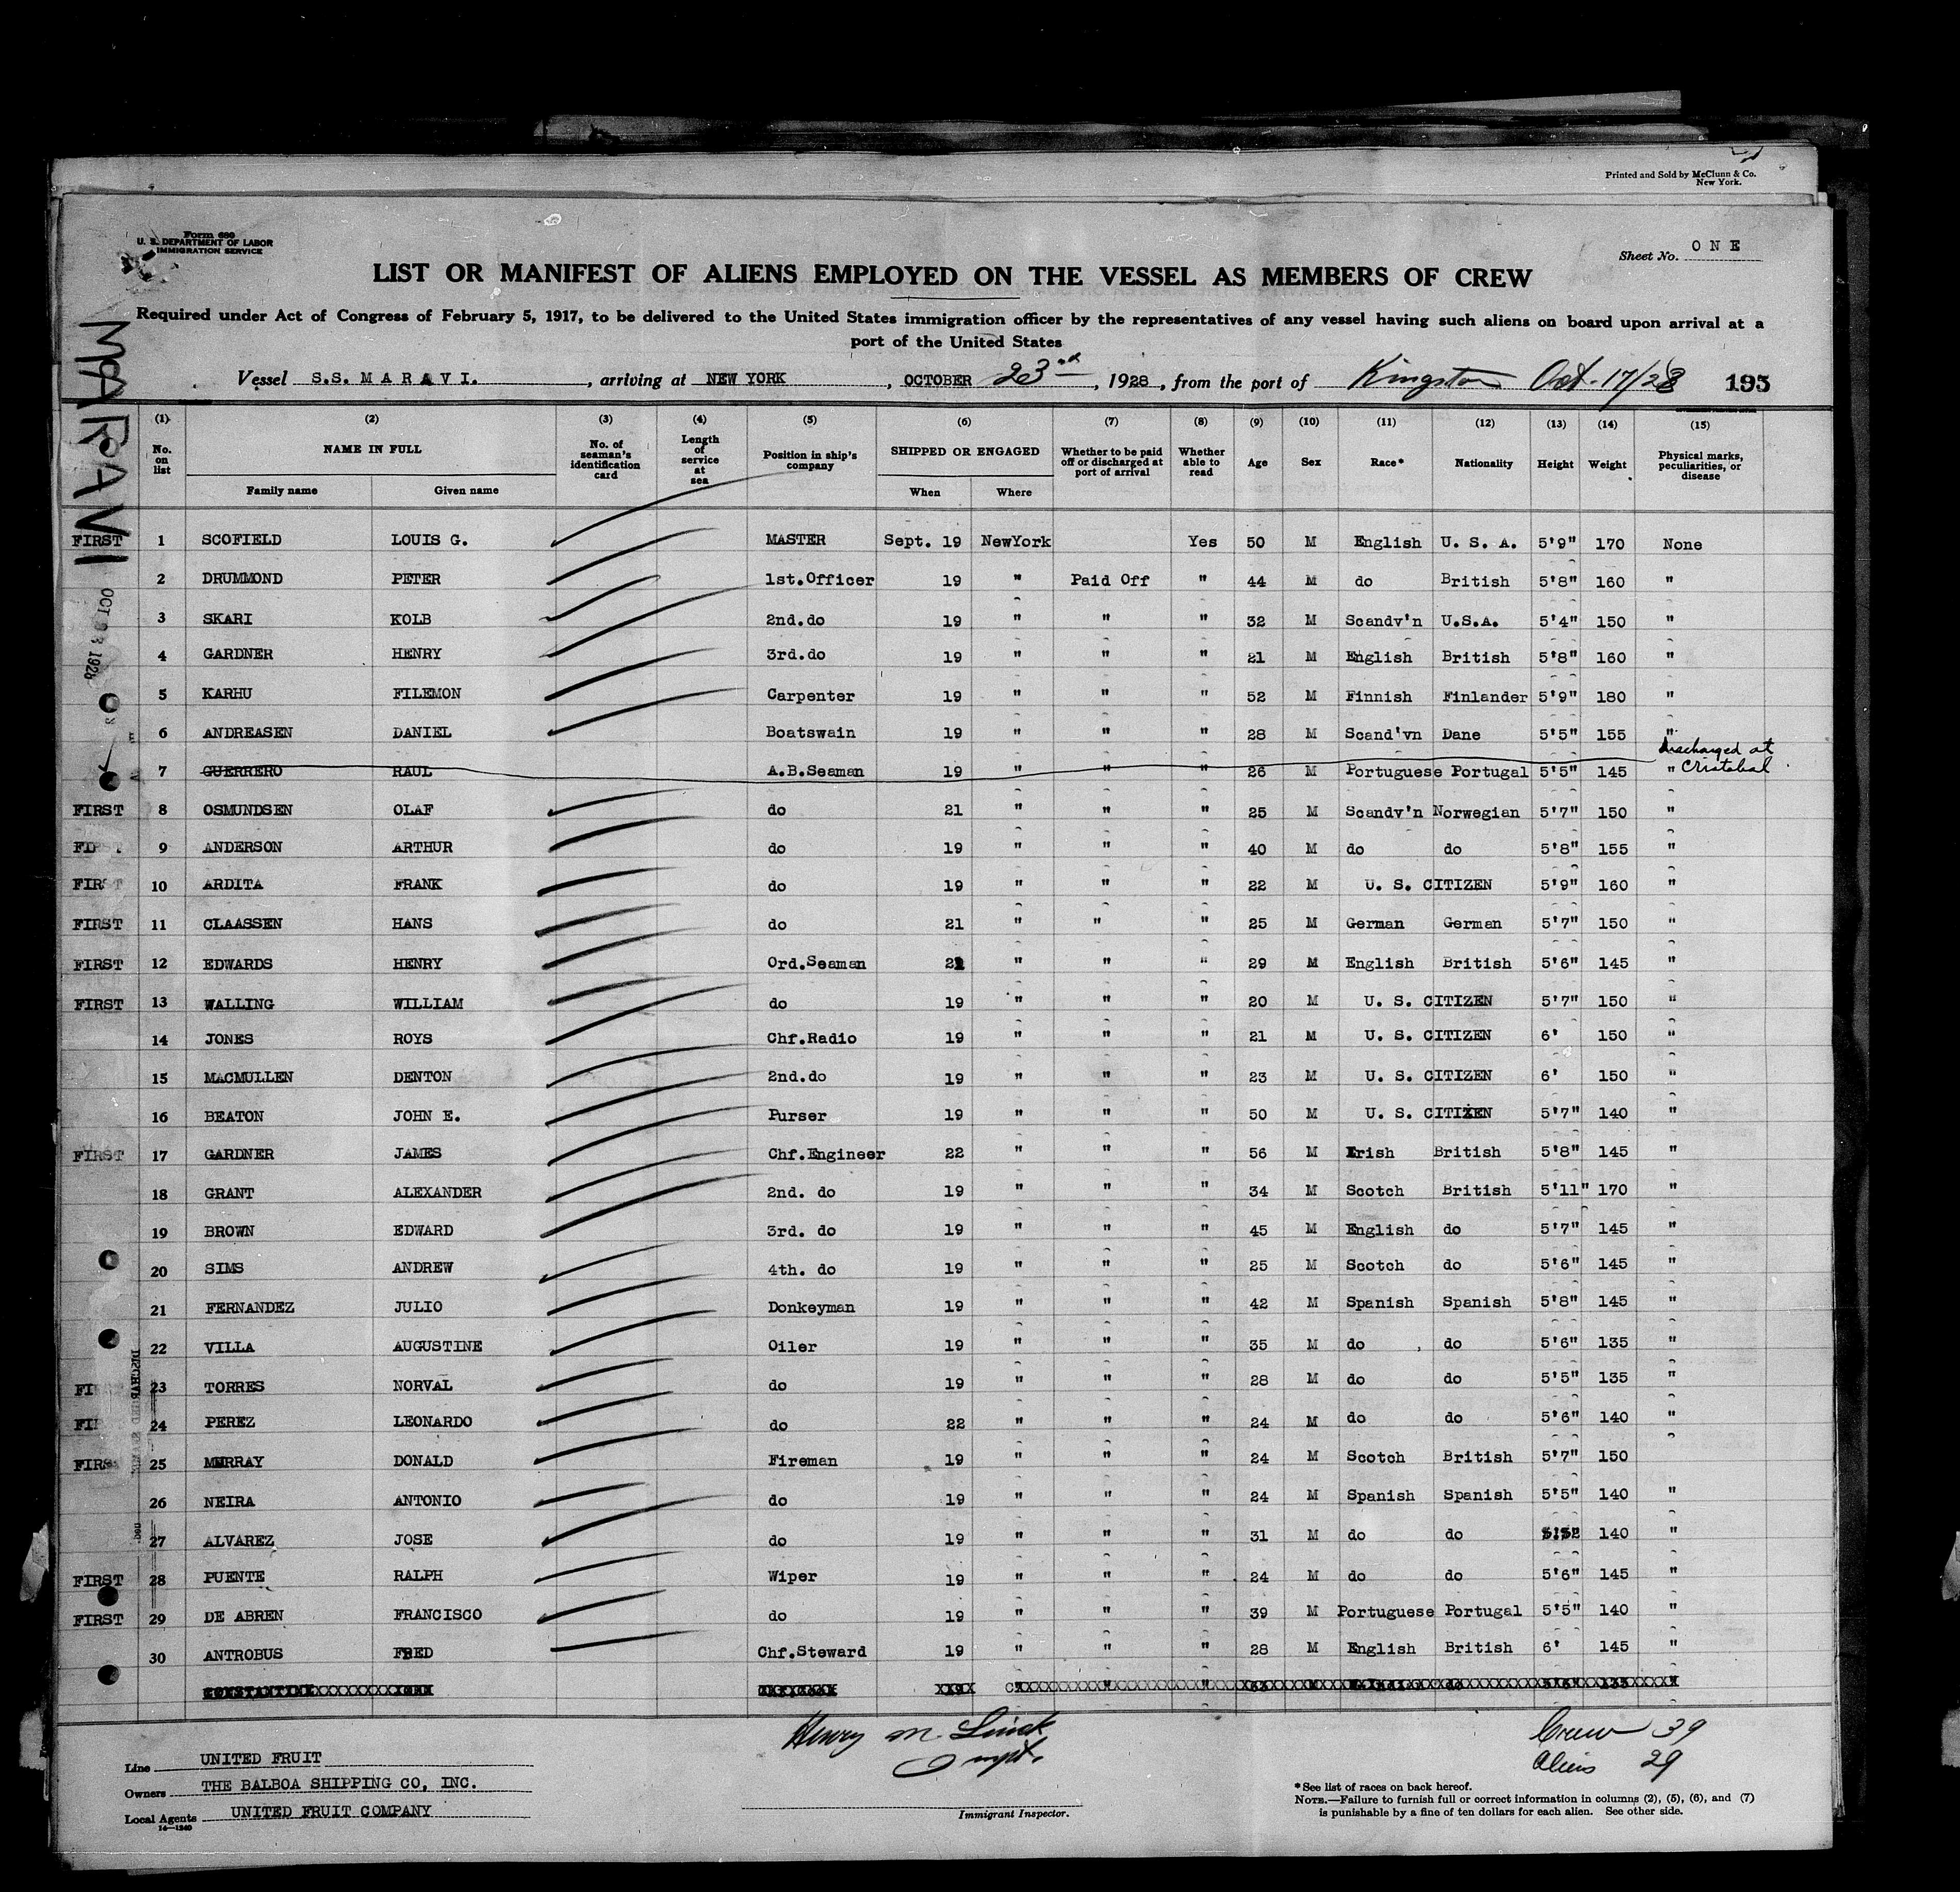 Printed and Sold by McClunn & Co.
New York.
Form 680
U. S. DEPARTMENT OF LABOR
IMMIGRATION SERVICE
Sheet No. ONE
LIST OR MANIFEST OF ALIENS EMPLOYED ON THE VESSEL AS MEMBERS OF CREW
Required under Act of Congress of February 5, 1917, to be delivered to the United States immigration officer by the representatives of any vessel having such aliens on board upon arrival at a
port of the United States
Vessel S.S. MARAVI. , arriving at NEW YORK , OCTOBER 23rd , 1928 , from the port of Kingston Oct. 17/28 195
MARAVI
OCT 23 1928
(1) (2) (3) (4) (5) (6) (7) (8) (9) (10) (11) (12) (13) (14) (15)
No. on list NAME IN FULL No. of seaman's identification card Length of service at sea Position in ship's company SHIPPED OR ENGAGED Whether to be paid off or discharged at port of arrival Whether able to read Age Sex Race* Nationality Height Weight Physical marks, peculiarities, or disease
Family name Given name When Where
FIRST 1 SCOFIELD LOUIS G. MASTER Sept. 19 NewYork Yes 50 M English U. S. A. 5'9" 170 None
2 DRUMMOND PETER 1st.Officer 19 " Paid Off " 44 M do British 5'8" 160 "
3 SKARI KOLB 2nd.do 19 " " " 32 M Scandv'n U.S.A. 5'4" 150 "
4 GARDNER HENRY 3rd.do 19 " " " 21 M English British 5'8" 160 "
5 KARHU FILEMON Carpenter 19 " " " 52 M Finnish Finlander 5'9" 180 "
6 ANDREASEN DANIEL Boatswain 19 " " " 28 M Scand'vn Dane 5'5" 155 "
7 GUERRERO RAUL A.B.Seaman 19 " " " 26 M Portuguese Portugal 5'5" 145 " discharged at Cristobal
FIRST 8 OSMUNDSEN OLAF do 21 " " " 25 M Scandv'n Norwegian 5'7" 150 "
FIRST 9 ANDERSON ARTHUR do 19 " " " 40 M do do 5'8" 155 "
FIRST 10 ARDITA FRANK do 19 " " " 22 M U. S. CITIZEN 5'9" 160 "
FIRST 11 CLAASSEN HANS do 21 " " " 25 M German German 5'7" 150 "
FIRST 12 EDWARDS HENRY Ord.Seaman 21 " " " 29 M English British 5'6" 145 "
FIRST 13 WALLING WILLIAM do 19 " " " 20 M U. S. CITIZEN 5'7" 150 "
14 JONES ROYS Chf.Radio 19 " " " 21 M U. S. CITIZEN 6' 150 "
15 MACMULLEN DENTON 2nd.do 19 " " " 23 M U. S. CITIZEN 6' 150 "
16 BEATON JOHN E. Purser 19 " " " 50 M U. S. CITIZEN 5'7" 140 "
FIRST 17 GARDNER JAMES Chf.Engineer 22 " " " 56 M Irish British 5'8" 145 "
18 GRANT ALEXANDER 2nd. do 19 " " " 34 M Scotch British 5'11" 170 "
19 BROWN EDWARD 3rd. do 19 " " " 45 M English do 5'7" 145 "
20 SIMS ANDREW 4th. do 19 " " " 25 M Scotch do 5'6" 145 "
21 FERNANDEZ JULIO Donkeyman 19 " " " 42 M Spanish Spanish 5'8" 145 "
22 VILLA AUGUSTINE Oiler 19 " " " 35 M do do 5'6" 135 "
23 TORRES NORVAL do 19 " " " 28 M do do 5'5" 135 "
24 PEREZ LEONARDO do 22 " " " 24 M do do 5'6" 140 "
FIRST 25 MURRAY DONALD Fireman 19 " " " 24 M Scotch British 5'7" 150
26 NEIRA ANTONIO do 19 " " " 24 M Spanish Spanish 5'5" 140 "
27 ALVAREZ JOSE do 19 " " " 31 M do do 140 "
FIRST 28 PUENTE RALPH Wiper 19 " " " 24 M do do 5'6" 145 "
FIRST 29 DE ABREN FRANCISCO do 19 " " " 39 M Portuguese Portugal 5'5" 140 "
30 ANTROBUS FRED Chf.Steward 19 " " " 28 M English British 6' 145 "
Line UNITED FRUIT
Owners THE BALBOA SHIPPING CO, INC.
Local Agents UNITED FRUIT COMPANY
14—1240
Henry M.
Immigrant Inspector.
Crew 39
Aliens 29
*See list of races on back hereof.
NOTE.—Failure to furnish full or correct information in columns (2), (5), (6), and (7)
is punishable by a fine of ten dollars for each alien. See other side.